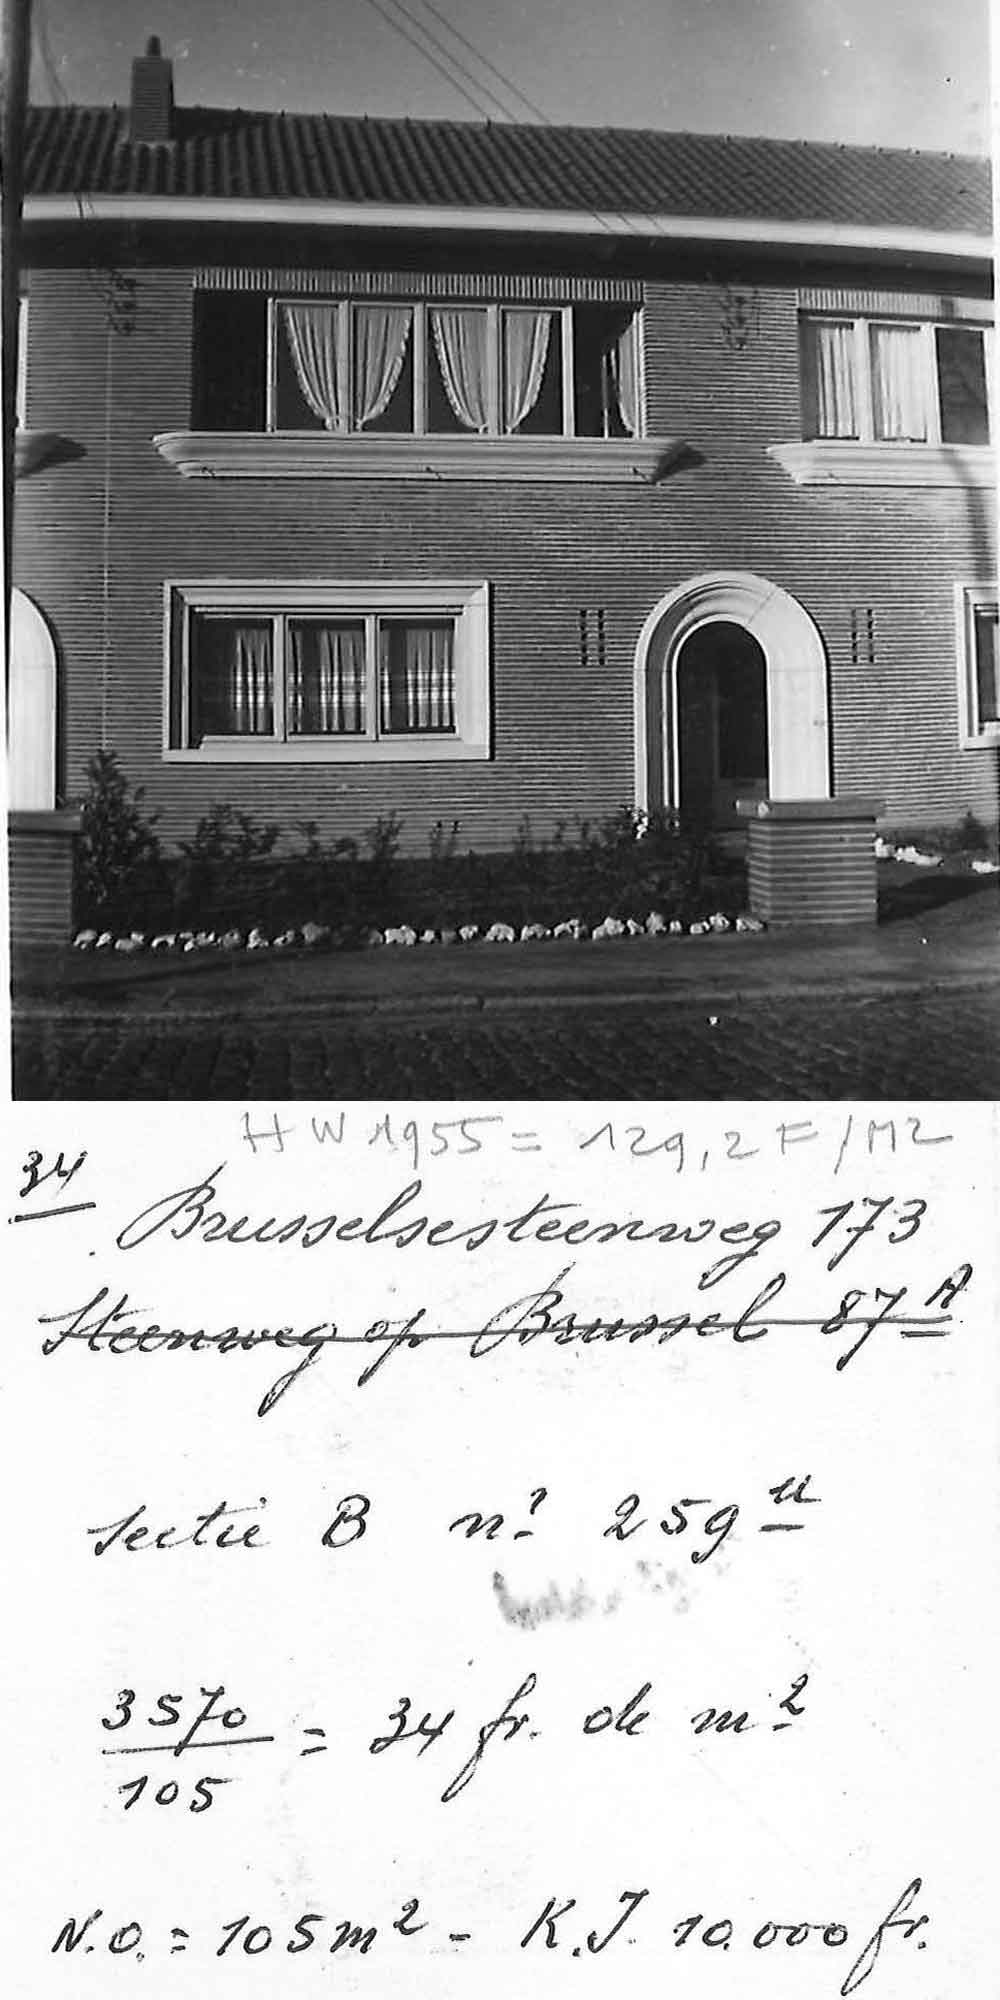 HW 1955 = 129,2 F/M2
34
Brusselsesteenweg 173
Steenweg op Brussel 87A
Sectie B n° 259u
3570
105
= 34 fr. de m2
N.O. = 105 m2 - K.I. 10.000 fr.